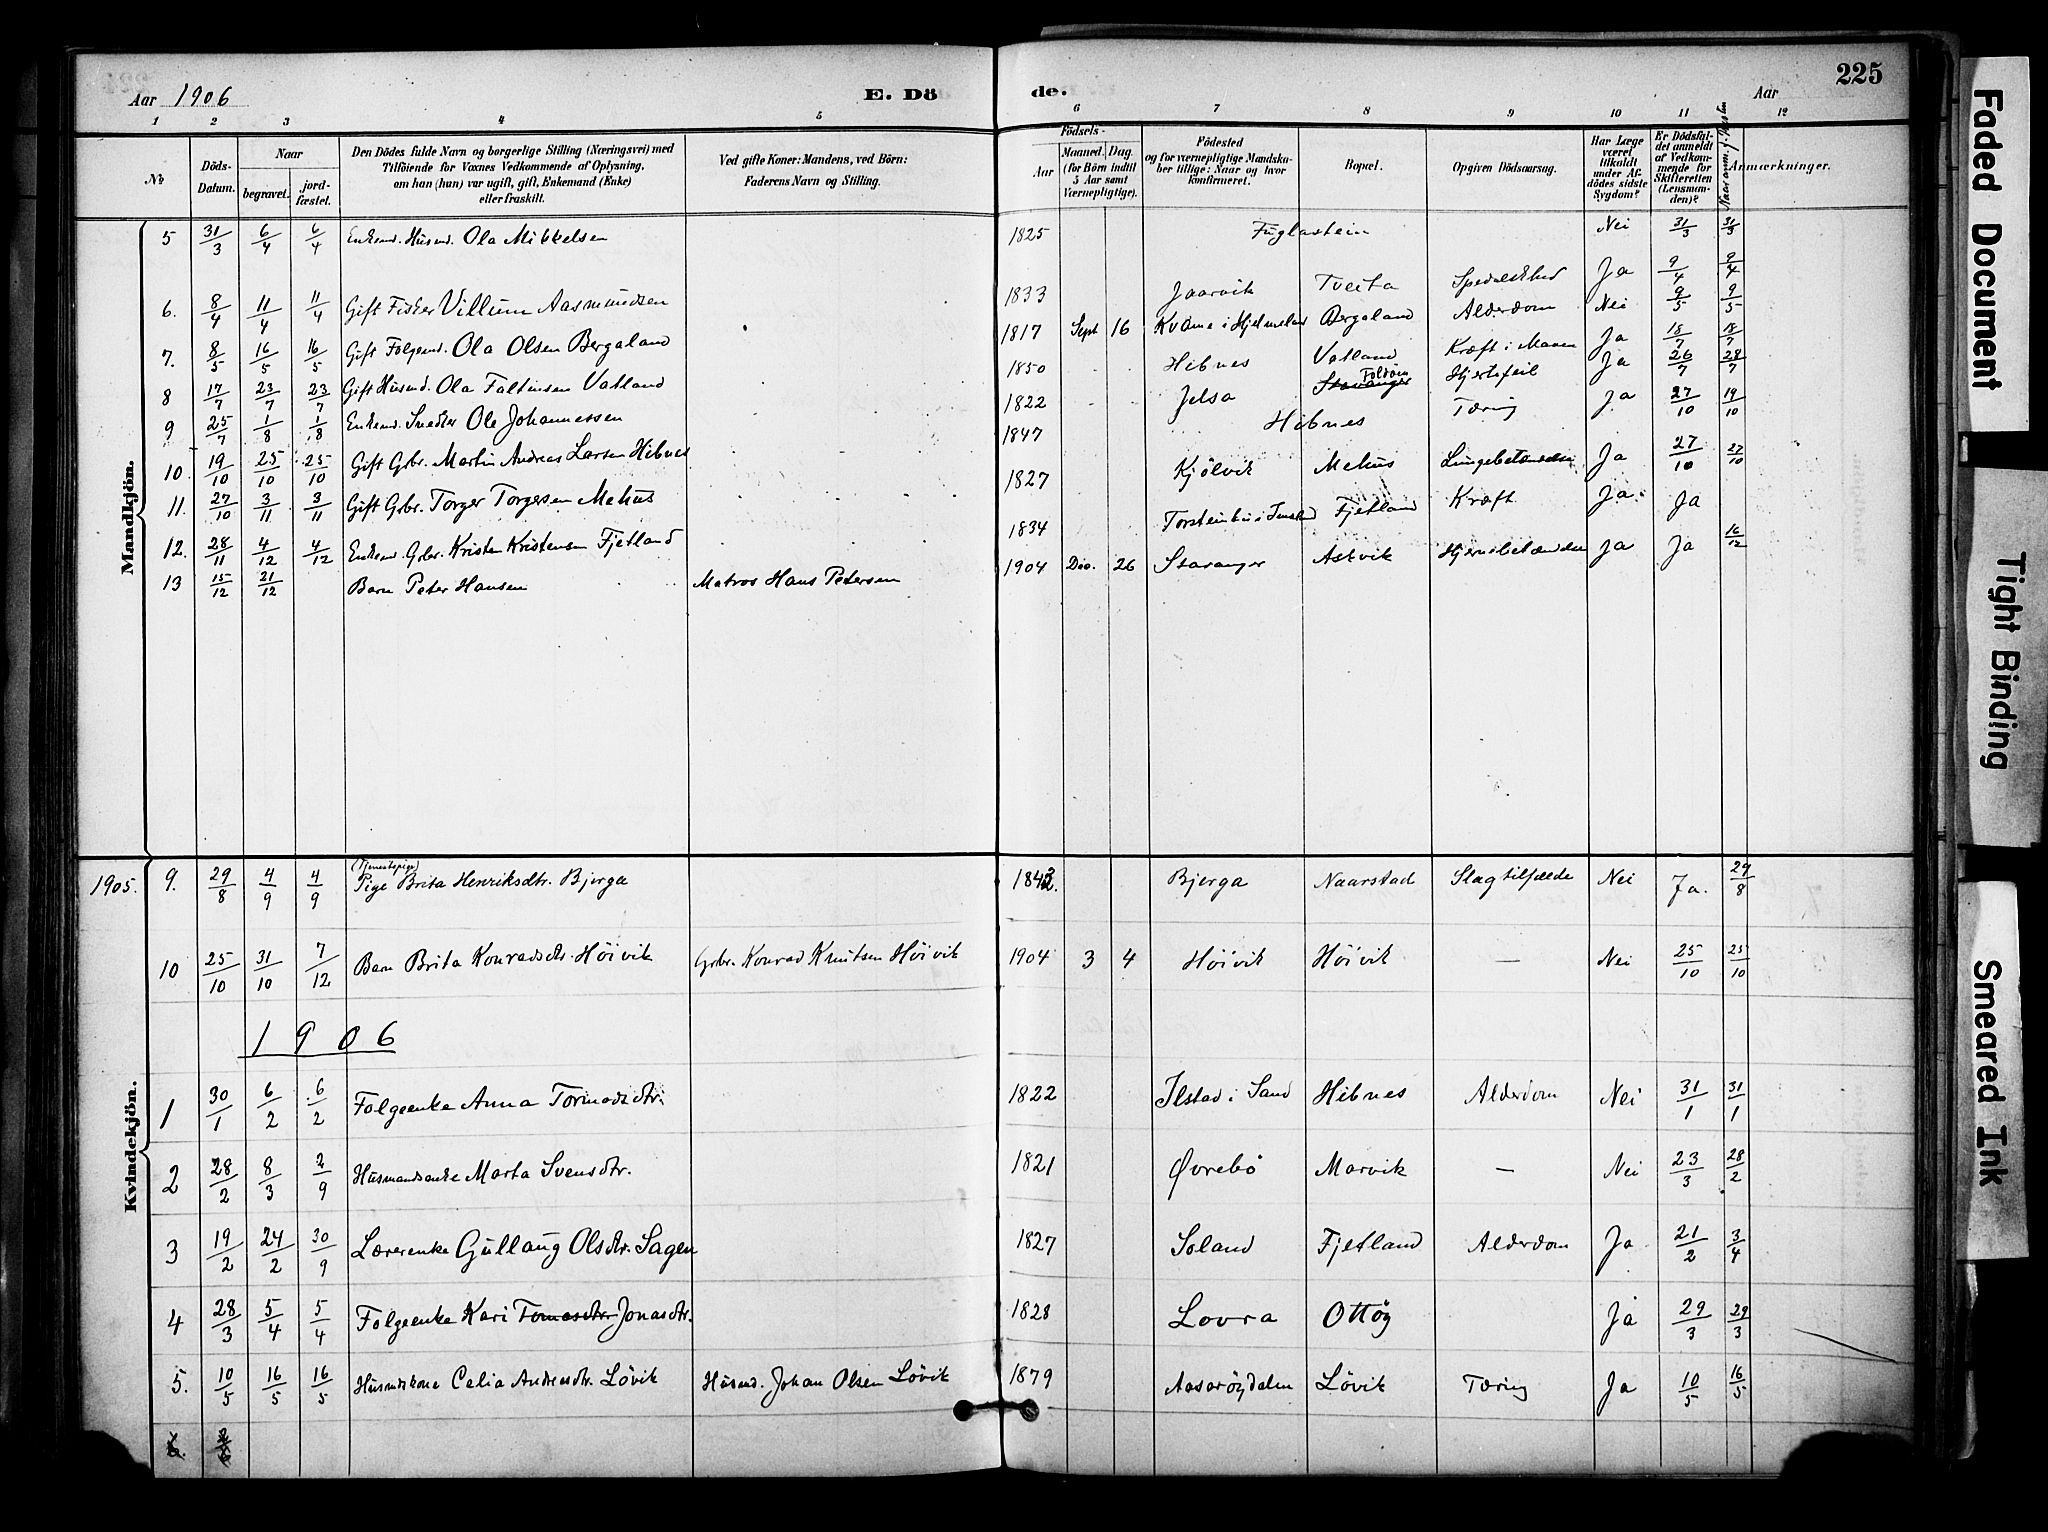 Aar 1906
E. Dö
de.
225
Aar
1 2 3 4 5 6 7 8 9 10 11 12
№
Döds-Datum.
Naar
begravet.
jord-fæstet.
Den Dödes fulde Navn og borgerlige Stilling (Næringsvei) med
Tilföiende for Voxnes Vedkommende af Oplysning,
om han (hun) var ugift, gift, Enkemand (Enke)
eller fraskilt.
Ved gifte Koner: Mandens, ved Börn:
Faderens Navn og Stilling.
Födsels-
Aar
Maaned. Dag.
(for Börn indtil
5 Aar samt
Værnepligtige).
Födested
og for værnepligtige Mandska-
ber tillige: Naar og hvor
konfirmeret.
Bopæl.
Opgiven Dödsaarsag.
Har Læge
været
tilkaldt
under Af-
dödes sidste
Sygdom?
Er Dödsfal-
det anmeldt
af Vedkom-
mende for
Skifteretten
(Lensman-
den)?
Anmærkninger.
Mandkjön.
5 31/3 6/4 6/4 Enkem. Husmd. Ola Mikkelsen 1825 Fuglastein Nei 31/3 31/3
6. 8/4 11/4 11/4 Gift Fisker Villum Aasmundsen 1833 Jaarvik Tveita Spedalskhed Ja 9/4 9/4
7. 8/5 16/5 16/5 Gift Folgemd. Ola Olsen Bergaland 1817 Sept 16 Kvame i Hjelmeland Bergaland Alderdom Nei 9/5 9/5
8 17/7 23/7 23/7 Gift Husmd. Ola Faltinsen Vatland 1850 Hebnes Vatland Kræft i Maven Ja 18/7 18/7
9 25/7 1/8 1/8 Enkemd. Snedker Ole Johannessen 1822 Jelsa Stavanger Foldøen Hjertefeil Ja 26/7 28/7
10 19/10 25/10 25/10 Gift Grbr. Martin Andreas Larsen Hebnes 1847 Hebnes Tæring Ja 27/10 19/10
11. 27/10 3/11 3/11 Gift Grbr. Torger Torgersen Mehus 1827 Kjölvik Mehus Lungebetændelse Ja 27/10 27/10
12. 28/11 4/12 4/12 Enkem. Grbr. Kristen Kristensen Fjetland 1834 Fjetland Kræft Ja Ja
13 15/12 21/12 Barn Peter Hansen Matros Hans Petersen 1904 Dec. 26 Stavanger Askvik Hjernebetændelse Ja Ja 16/12
Kvindekjön.
1905. 9. 29/8 4/9 4/9 (Tjenestepige) Pige Brita Henriksdtr. Bjerga 1842. Bjerga Naarstad Slagtilfælde Nei Ja. 29/8
10 25/10 31/10 7/12 Barn Brita Konradsdtr. Høivik Grbr. Konrad Knutsen Høivik 1904 3 4 Høivik Høivik — Nei 25/10 25/10
1906
1 30/1 6/2 6/2 Folgeenke Anna Tormodsdtr. 1822 Ilstad i Sand Hebnes Alderdom Nei 31/1 31/1
2 28/2 8/3 2/9 Husmandsenke Marta Svensdtr. 1821 Øvrebø Marvik — Nei 23/3 28/2
3 19/2 24/2 30/9 Lærerenke Gullaug Olsdtr. Sagen 1827 Soland Fjetland Alderdom Ja 21/2 3/4
4 28/3 5/4 5/4 Folgeenke Kari Tomasdtr Jonasdtr. 1828 Lovra Ottøy Ja 29/3 29/3
5. 10/5 16/5 16/5 Husmdskone Celia Andreasdtr. Løvik Husmd. Johan Olsen Løvik 1879 Løvik Tæring Ja 10/5 16/5
Faded Document
Tight Binding
Smeared Ink